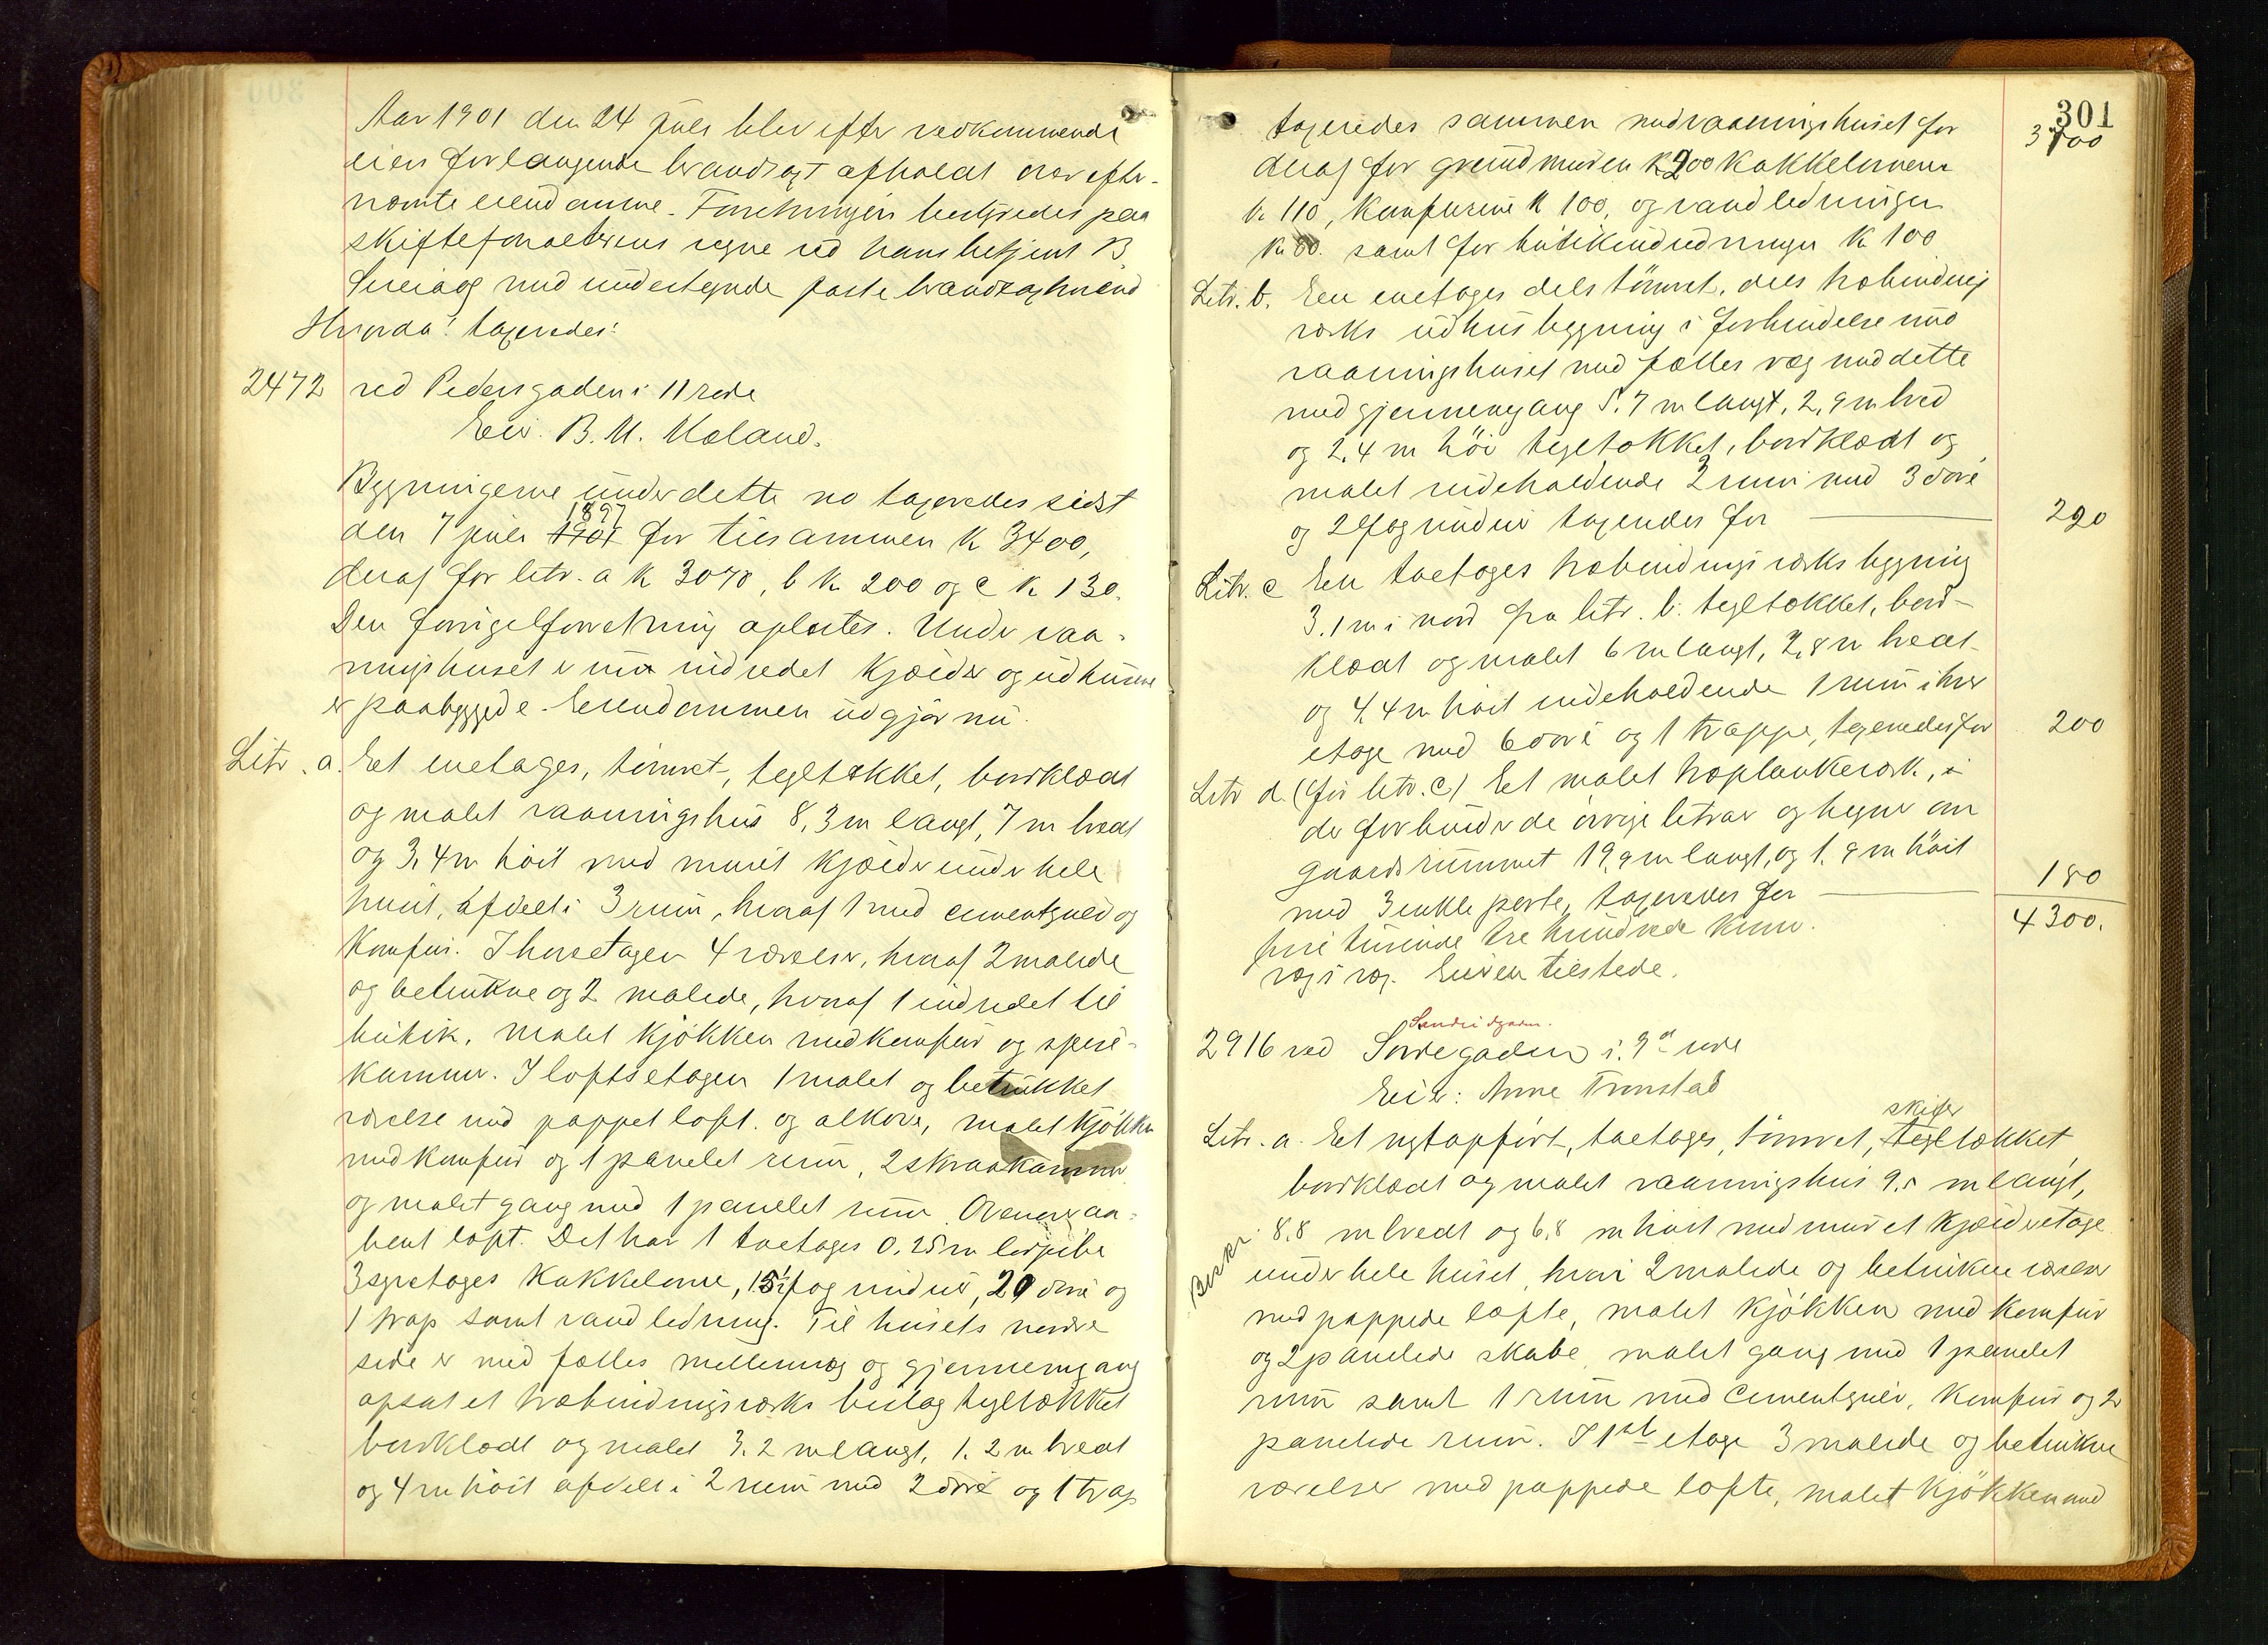 Aar 1901 den 24 juli blev efter vedkommende
eiers forlangende brandtaxt afholdt over efter-
nævnte eiendomme. Forretningen bestyredes paa
skifteforvalterens vegne ved hans betjent B.
med undertegnede faste brandtaxtmænd
Hvorda! taxeredes:
2472 ved Pedersgaden i 11 rode
Eier. B. M. Mæland.
Bygningerne under dette no taxeredes sidst
den 7 juli 1901 1897 for tilsammen K 3400,
deraf for letr. a K 3070, b K 200 og c K 130.
Den forrige forretning oplæstes. Under vaa-
ningshuset er nu indredet kjælder og udhusene
er paabyggede. Eiendommen udgjør nu.
Litr. a. Et enetages, tømret, tegltækket, bordklædt
og malet vaaningshus 8,3 m langt, 7 m bredt
og 3,4 m høit med muret kjælder under hele
huset, afdelt i 3 rum, hvoraf 1 med cementgulv og
Komfur. I 1ste etagen 4 værelser, hvoraf 2 malede
og betrukne og 2 malede, hvoraf 1 indredet til
butik, malet kjøkken med komfur og spise-
kammer. I loftsetagen 1 malet og betrukket
værelse med pappet loft og alkove, malet kjøkken
med komfur og 1 panelet rum, 2 skraakammer
og malet gang med 1 panelet rum. Ovenover aa-
bent loft. Det har 1 toetages 0,25 m løspibe
3 syvetages Kakkelovne, 15½ fag vinduer, 20 døre og
1 trap samt vandledning. Til husets nordre
side er med fælles mellemvæg og gjennemgang
opsat et træbindingsværks bislag tegltækket
bordklædt og malet 3.2 m langt, 1.2 m bredt
og 4 m høit afdelt i 2 rum med 2 døre og 1 trap
301
taxeredes sammen med vaaningshuset for 3700
deraf for grundmuren K 200 kakkelovnene
k. 110, komfurene K 100, og vandledningen
K 80. samt for butikindredningen K 100
Litr. b. En enetages dels tømret, dels træbindings
værks udhusbygning i forbindelse med
vaaningshuset med fælles væg med dette
med gjennemgang 5.7 m langt, 2,9 m bred
og 2,4 m høi tegltækket, bordklædt og
malet indeholdende 2 rum med 3 døre
og 2 fag vinduer taxeredes for 220
Litr. c En toetages træbindingsværks bygning
3.1 m i nord fra letr. b. tegltækket, bord-
klædt og malet 6 m langt, 2,8 m bredt
og 4,4 m høit indeholdende 1 rum i hver
etage med 6 døre og 1 trappe, taxeredes for 200
Litr d. (før letr. c) Et malet træplankeværk,
der forbinder de øvrige letraer og hegner om
gaardsrummet 19,9 m langt, og 1.9 m høit
med 3 enkle porte, taxeredes for 180
fire tusinde tre hundrede kroner. 4300.
væg i væg. Eieren tilstede.
Søndre
2916 ved Søregaden i 9de rode
Eier: Anne Tronstad
Litr. a. Et nytopført, toetages, tømret, skifer tegltækket,
bordklædt og malet vaaningshus 9.5 m langt,
8,8 m bredt og 6,8 m høit med muret kjælderetage
under hele huset, hvori 2 malede og betrukne værelser
med pappede lofte, malet kjøkken med komfur
og 2 panelede skabe, malet gang med 1 panelet
rum samt 1 rum med cementgulv, komfur og 2
panelede rum. I 1ste etage 3 malede og betrukne
værelser med pappede lofte, malet kjøkken med